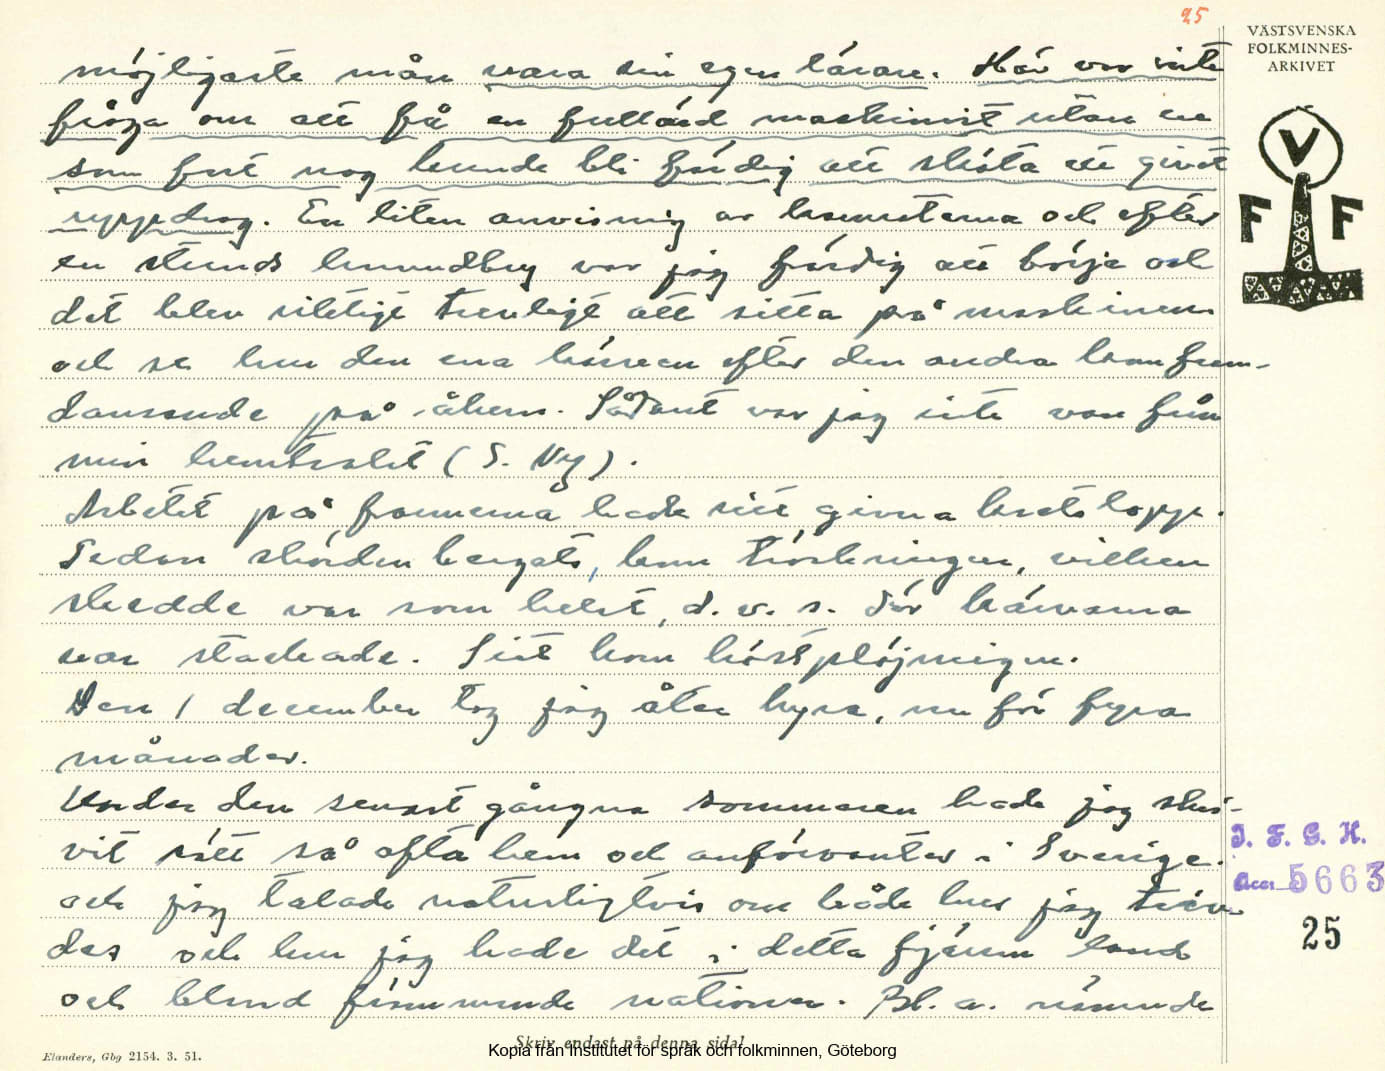 25
VÄSTSVENSKA
FOLKMINNES-
ARKIVET
möjligaste mån vara sin egen lärare. Här var inte
fråga om att få en fullärd maskinist utan en
som fort nog kunde bli färdig att sköta ett givet
uppdrag. En liten anvisning av
en stunds var jag färdig att börja och
det blev riktigt trevligt att sitta på maskinen
och se hur den ena kärven efter den andra kom fram-
dansande på åkern. Sådant var jag inte van från
min hemtrakt (S. Ny).
Arbetet på farmerna hade sitt givna kretslopp.
Sedan skörden bergats, kom tröskningen, vilken
skedde var som helst, d. v. s. där kärvarna
var stackade. Sist kom höstplöjningen.
Den 1 december tog jag åter hyra, nu för fyra
månader.
Under den senast gångna sommaren hade jag skri-
vit rätt så ofta hem och anförvanter i Sverige.
och jag talade naturligtvis om både hur jag triv-
des och hur jag hade det i detta fjärran land
och bland främmande nationer. Bl. a. nämnde
V
F F
I. F. G. H.
Acc. 5663
25
Skriv endast på denna sida!
Elanders, Gbg 2154. 3. 51.
Kopia från Institutet för språk och folkminnen, Göteborg